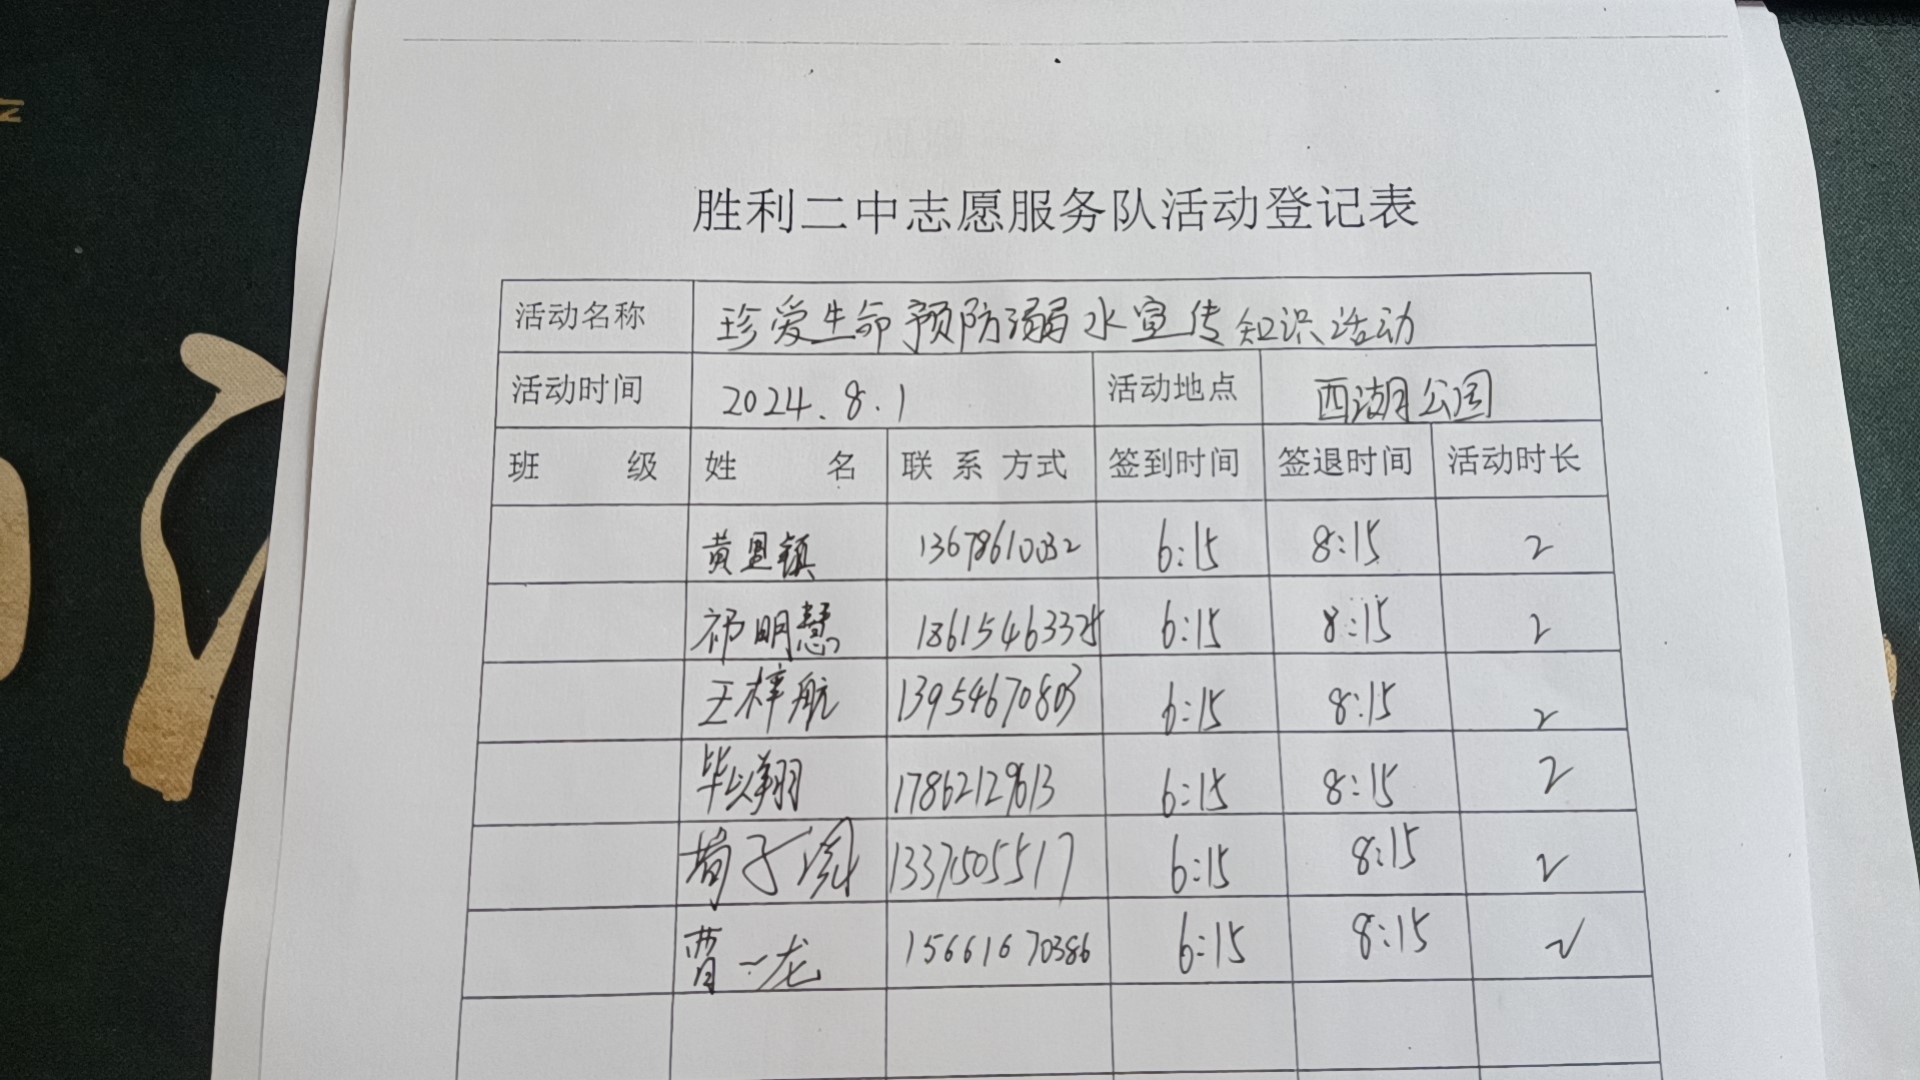 胜利二中志愿服务队活动登记表
活动名称 珍爱生命预防溺水宣传知识活动
活动时间 2024.8.1 活动地点 西湖公园
班 级 姓 名 联系方式 签到时间 签退时间 活动时长
黄恩镇 13678610032 6:15 8:15 2
祁明慧 18615463325 6:15 8:15 2
王梓航 13954670803 6:15 8:15 2
毕以翔 17862129613 6:15 8:15 2
荀子 13371505517 6:15 8:15 2
曹一龙 15661670386 6:15 8:15 2